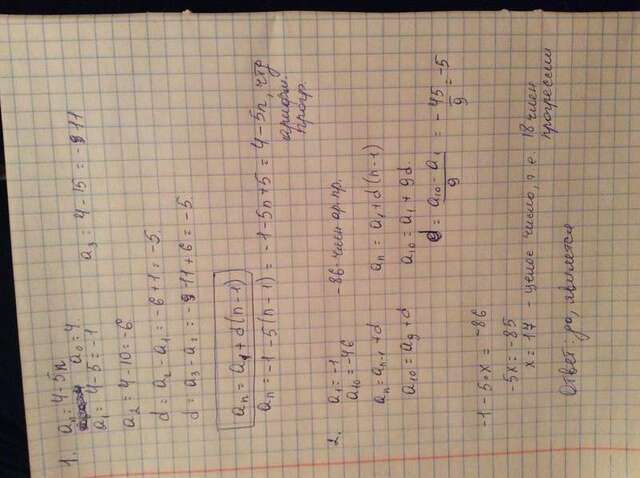 1. aₙ = 4-5n
a₀ = 4
a₁ = 4-5 = -1
a₂ = 4-10 = -6
a₃ = 4-15 = -11
d = a₂ - a₁ = -6+1 = -5.
d = a₃ - a₂ = -11+6 = -5.
aₙ = a₁ + d(n-1)
aₙ = -1-5(n-1) = -1-5n+5 = 4-5n, что
арифм.
прогр.
2. a₁ = -1 -86-член ар.пр.
a₁₀ = -46
aₙ = aₙ₋₁ + d aₙ = a₁ + d(n-1)
a₁₀ = a₉ + d a₁₀ = a₁ + 9d
d = (a₁₀ - a₁)/9 = -45/9 = -5
-1-5·x = -86
-5x = -85
x = 17 - целое число, т.е. 18 член
прогрессии
Ответ: да, является